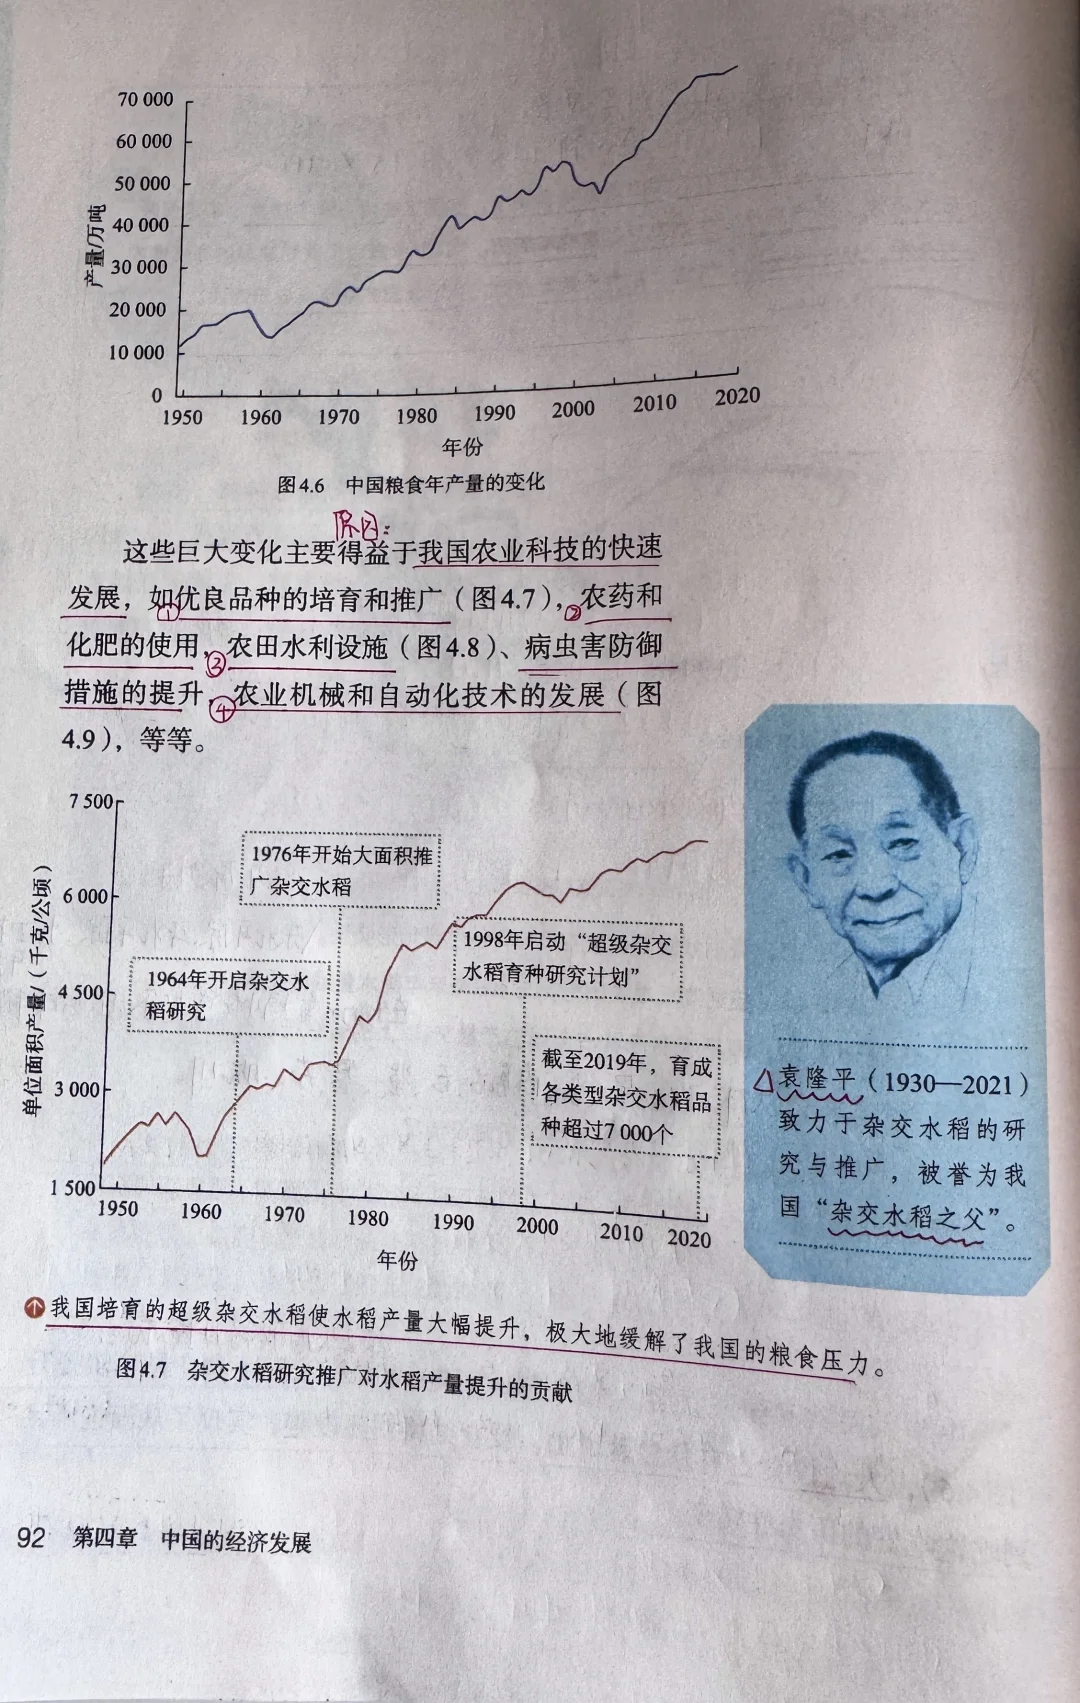 70 000
60 000
50 000
40 000
30 000
20 000
10 000
0
产量/万吨
1950 1960 1970 1980 1990 2000 2010 2020
年份
图4.6 中国粮食年产量的变化
原因：
这些巨大变化主要得益于我国农业科技的快速
发展，如①优良品种的培育和推广（图4.7），②农药和
化肥的使用、③农田水利设施（图4.8）、病虫害防御
措施的提升、④农业机械和自动化技术的发展（图
4.9），等等。
7 500
6 000
4 500
3 000
1 500
单位面积产量/（千克/公顷）
1976年开始大面积推
广杂交水稻
1964年开启杂交水
稻研究
1998年启动“超级杂交
水稻育种研究计划”
截至2019年，育成
各类型杂交水稻品
种超过7 000个
1950 1960 1970 1980 1990 2000 2010 2020
年份
△袁隆平（1930—2021）
致力于杂交水稻的研
究与推广，被誉为我
国“杂交水稻之父”。
↑我国培育的超级杂交水稻使水稻产量大幅提升，极大地缓解了我国的粮食压力。
图4.7 杂交水稻研究推广对水稻产量提升的贡献
92 第四章 中国的经济发展